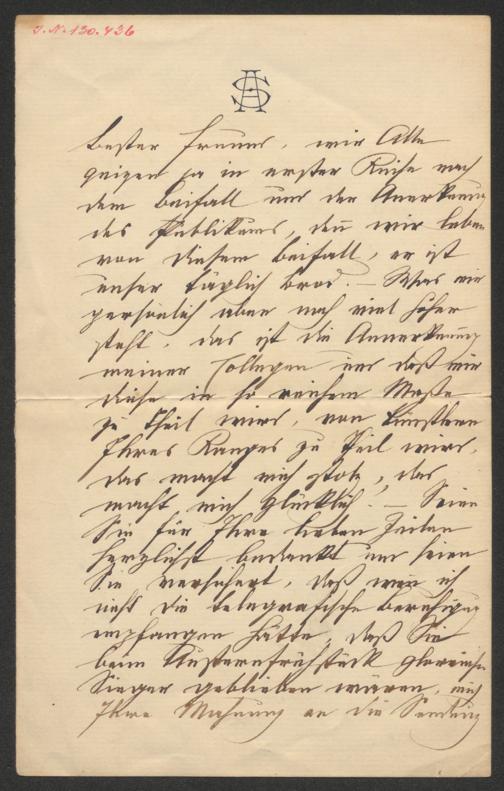 J.N. 130.436
AS
Bester Freund, wir Alle
geigen ja in erster Reihe nach
dem Beifall und der Anerkennung
des Publikums, den wir leben
von diesem Beifall, er ist
unser täglich Brod. – Was mir
persönlich aber noch viel höher
steht, das ist die Anerkennung
meiner Collegen und daß mir
diese in so reichem Maße
zu Theil wird, von Künstlern
Ihres Ranges zu Theil wird,
das macht mich stolz, das
macht mich glücklich! – Seien
Sie für Ihre lieben Zeilen
herzlichst bedankt und seien
Sie versichert, daß wen ich
nicht die telegrafische Beruhigung
empfangen hätte, daß Sie
beim Austernfrühstück glorreicher
Sieger geblieben wären, mich
Ihre Mahnung an die Sendung